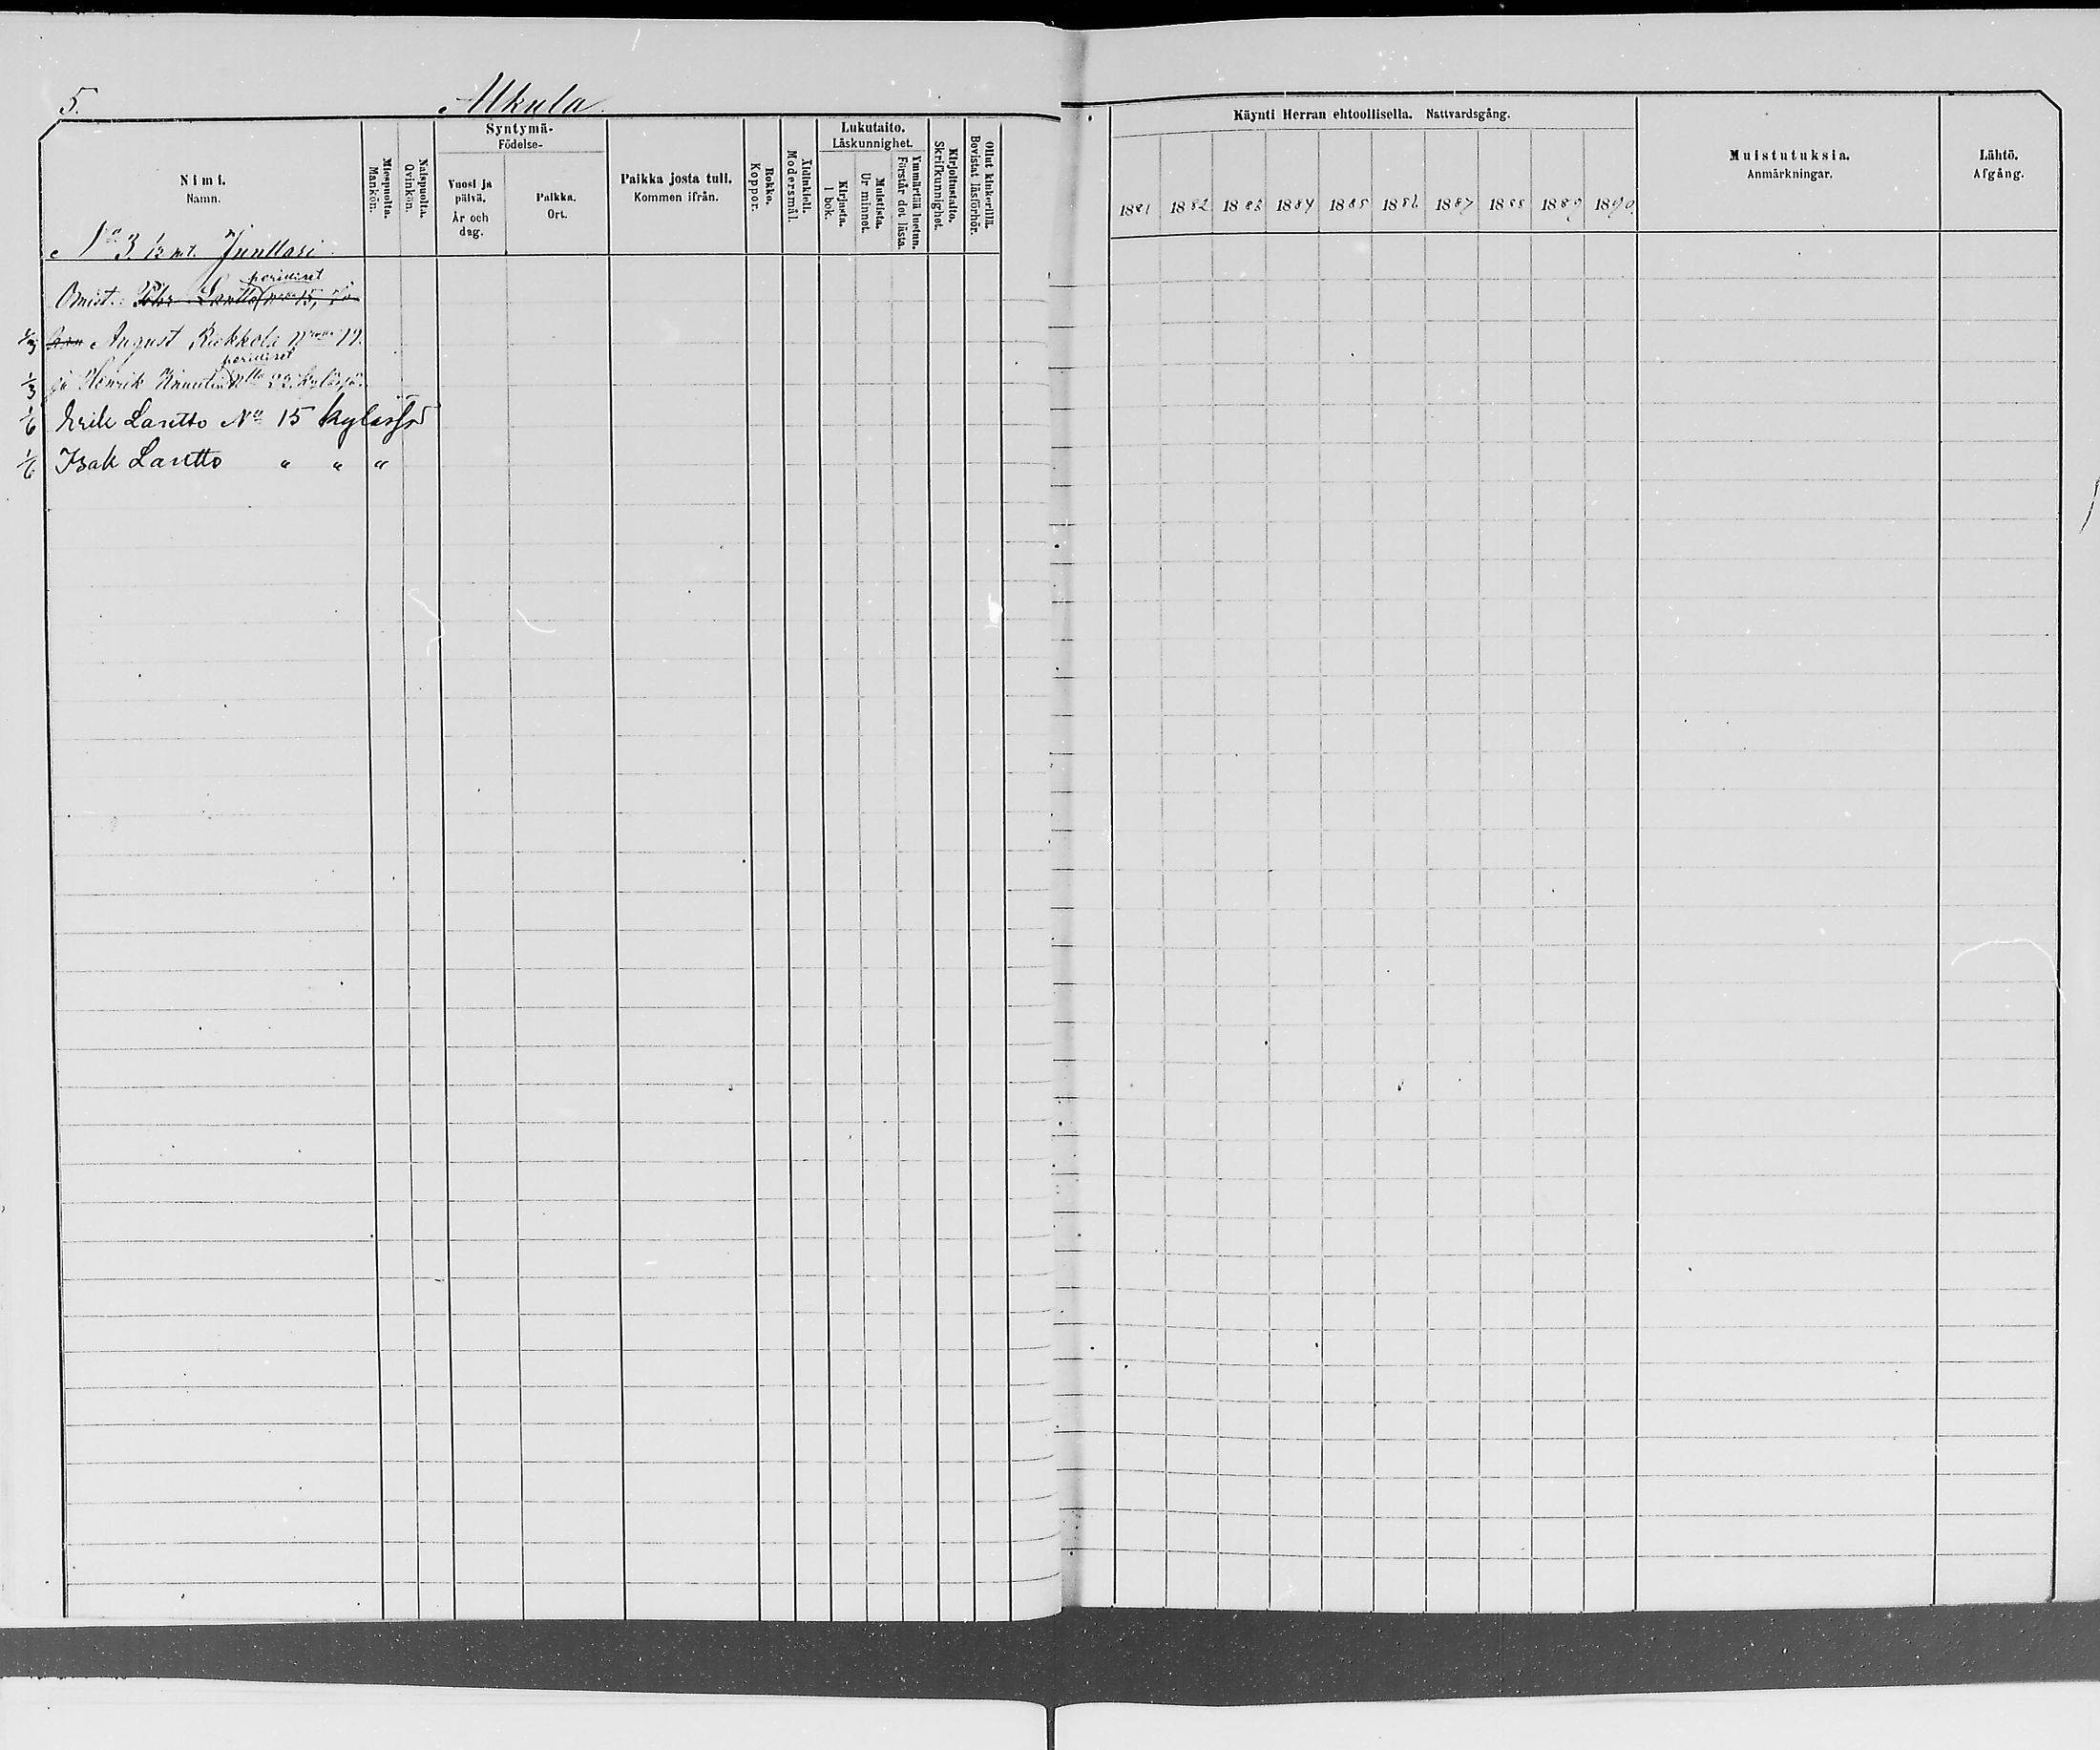 5.
Alkula
Nimi.
Namn.
Miespuolta.
Mankön.
Naispuolta.
Qvinkön.
Syntymä-
Födelse-
Vuosi ja
päivä.
År och
dag.
Paikka.
Ort.
Paikka josta tuli.
Kommen ifrån.
Rokko.
Koppor.
Äidinkieli.
Modersmål.
Lukutaito.
Läskunnighet.
Kirjasta.
I bok.
Muistista.
Ur minnet.
Ymmärtää luetun.
Förstår det lästa.
Kirjoitustaito.
Skrifkunnighet.
Ollut kinkerillä.
Bevistat läsförhör.
No 3 1/2 mt. Junttari
perilliset
Omist.: Lantto 15, ja
1/3 August Riekkola 19.
perilliset
1/3 ja Henrik 22. kylässä.
1/6 Erik Lantto No 15 kylässä
1/6 Isak Lantto " " "
Käynti Herran ehtoollisella. Nattvardsgång.
1881 1882 1883 1884 1885 1886 1887 1888 1889 1890.
Muistutuksia.
Anmärkningar.
Lähtö.
Afgång.